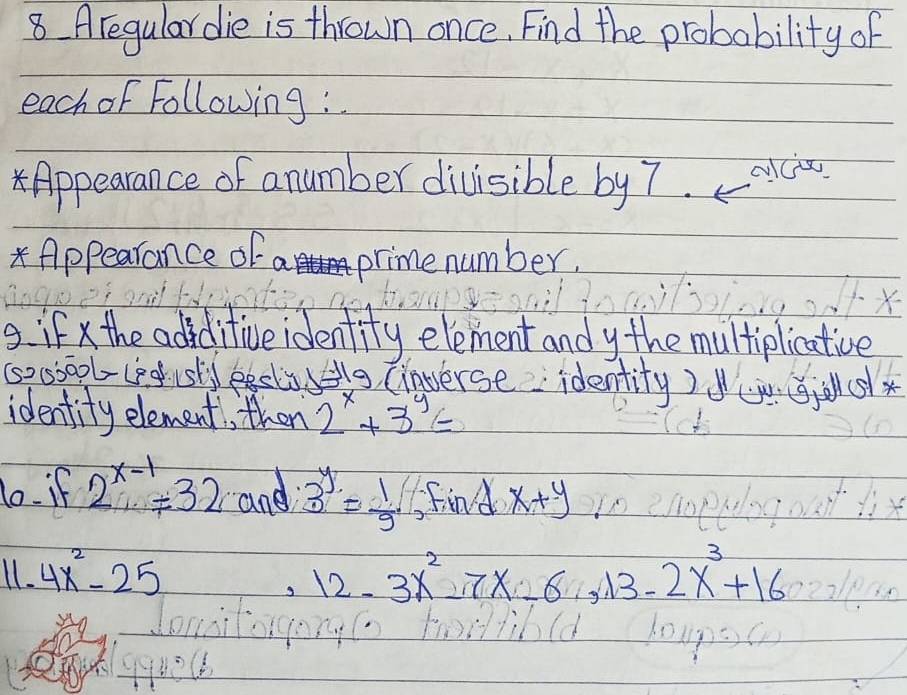 8 - A regular die is thrown once. Find the probability of
each of Following :.
* Appearance of a number divisible by 7 . ←
* Appearance of a prime number.
9 - if x the additive identity element and y the multiplicative
(inverse : identity)
identity element, then 2^x + 3^y =
10 - if 2^{x-1} = 32 and 3^y = 1/9, find x+y .
11 - 4x² - 25 , 12 - 3x² - 7x - 6 , 13 - 2x³ + 16